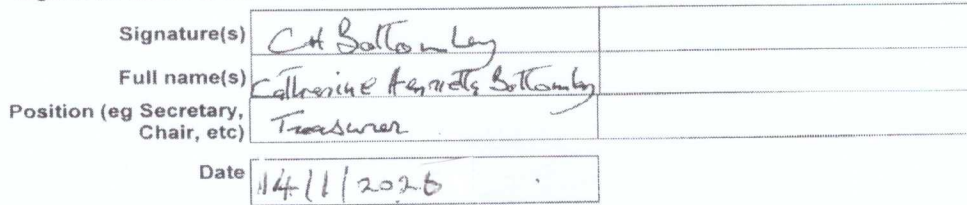 Signature(s) CH Bottomley
Full name(s) Catherine Henrietta Bottomley
Position (eg Secretary,
Chair, etc) Treasurer
Date 14/1/2026